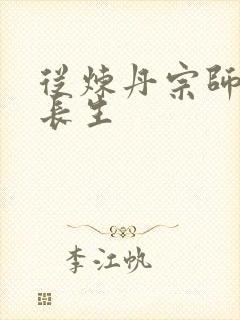 從煉丹宗師
長生
李江帆